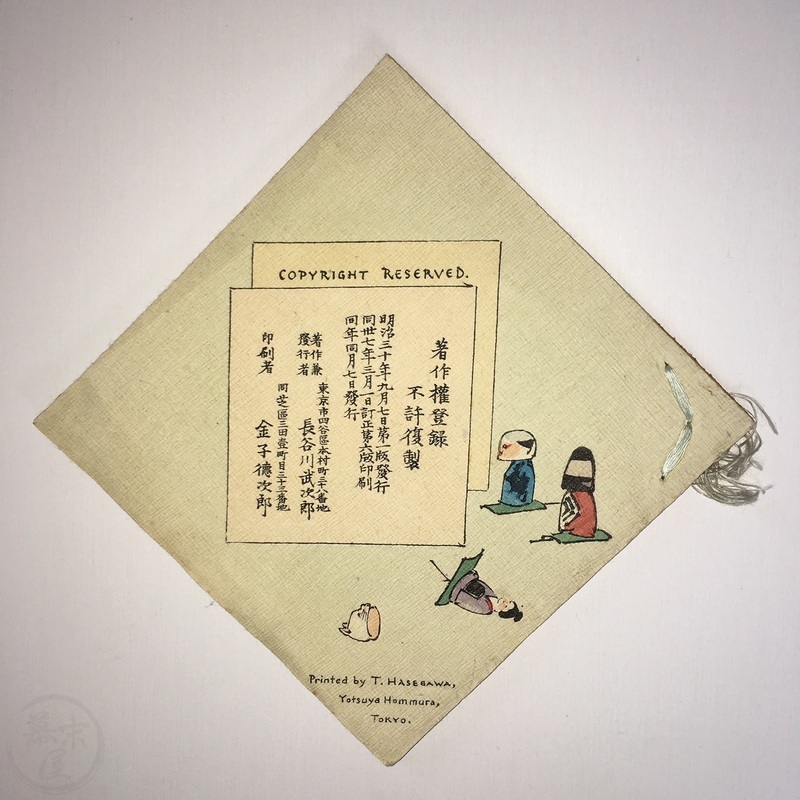 COPYRIGHT RESERVED.
著作權登録
不許復製
明治三十年九月七日第一版發行
同卅七年三月一日訂正第六版印刷
同年同月七日發行
著作兼
發行者
東京市四谷區本村町三十八番地
長谷川武次郎
印刷者
同芝區三田壹町目二十三番地
金子德次郎
Printed by T. HASEGAWA,
Yotsuya Hommura,
TOKYO.
幕末屋